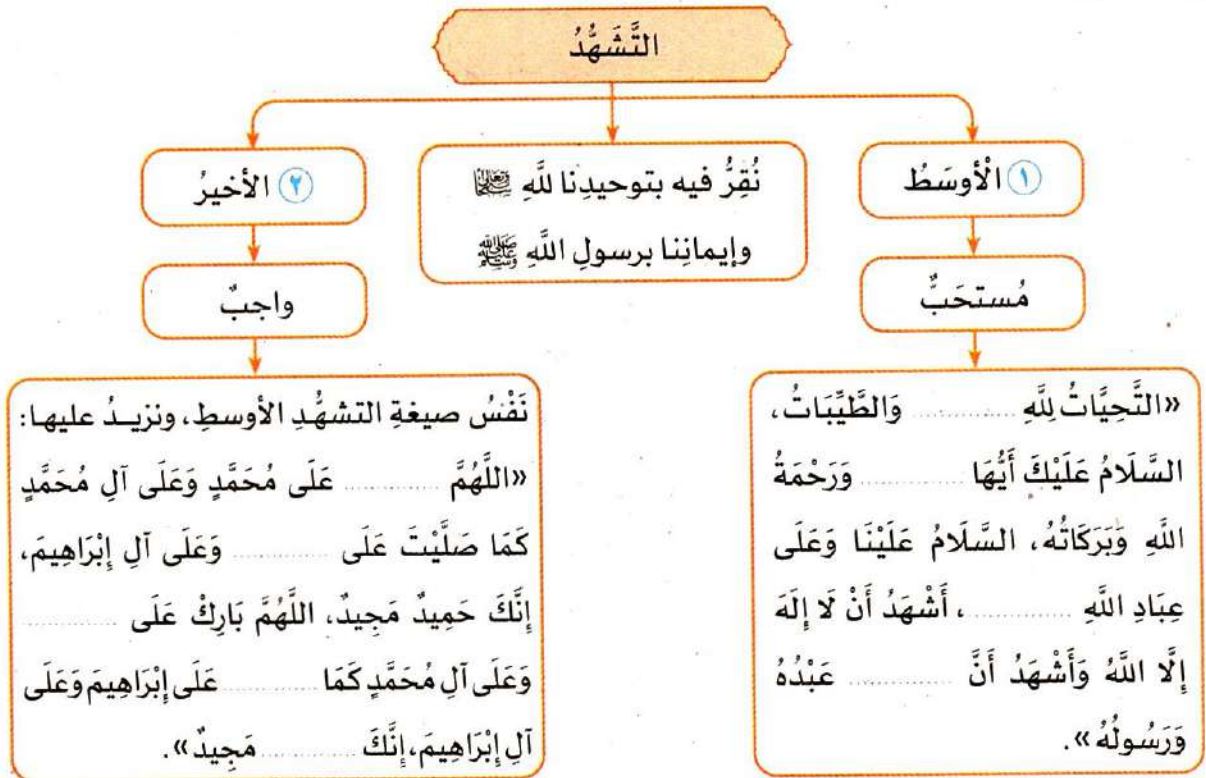 التَّشَهُّدُ
١ الْأوسَطُ
مُستحَبٌّ
«التَّحِيَّاتُ لِلَّهِ ............ وَالطَّيِّبَاتُ،
السَّلَامُ عَلَيْكَ أَيُّهَا ............ وَرَحْمَةُ
اللَّهِ وَبَرَكَاتُهُ، السَّلَامُ عَلَيْنَا وَعَلَى
عِبَادِ اللَّهِ ............، أَشْهَدُ أَنْ لَا إِلَهَ
إِلَّا اللَّهُ وَأَشْهَدُ أَنَّ ............ عَبْدُهُ
وَرَسُولُهُ».
نُقِرُّ فيه بتوحيدِنا للَّهِ ﷾
وإيمانِنا برسولِ اللَّهِ ﷺ
٢ الأخيرُ
واجبٌ
نَفْسُ صيغةِ التشهُّدِ الأوسطِ، ونزيـدُ عليهـا:
«اللَّهُمَّ ............ عَلَى مُحَمَّدٍ وَعَلَى آلِ مُحَمَّدٍ
كَمَا صَلَّيْتَ عَلَى ............ وَعَلَى آلِ إِبْرَاهِيمَ،
إِنَّكَ حَمِيدٌ مَجِيدٌ، اللَّهُمَّ بَارِكْ عَلَى ............
وَعَلَى آلِ مُحَمَّدٍ كَمَا ............ عَلَى إِبْرَاهِيمَ وَعَلَى
آلِ إِبْرَاهِيمَ، إِنَّكَ ............ مَجِيدٌ».